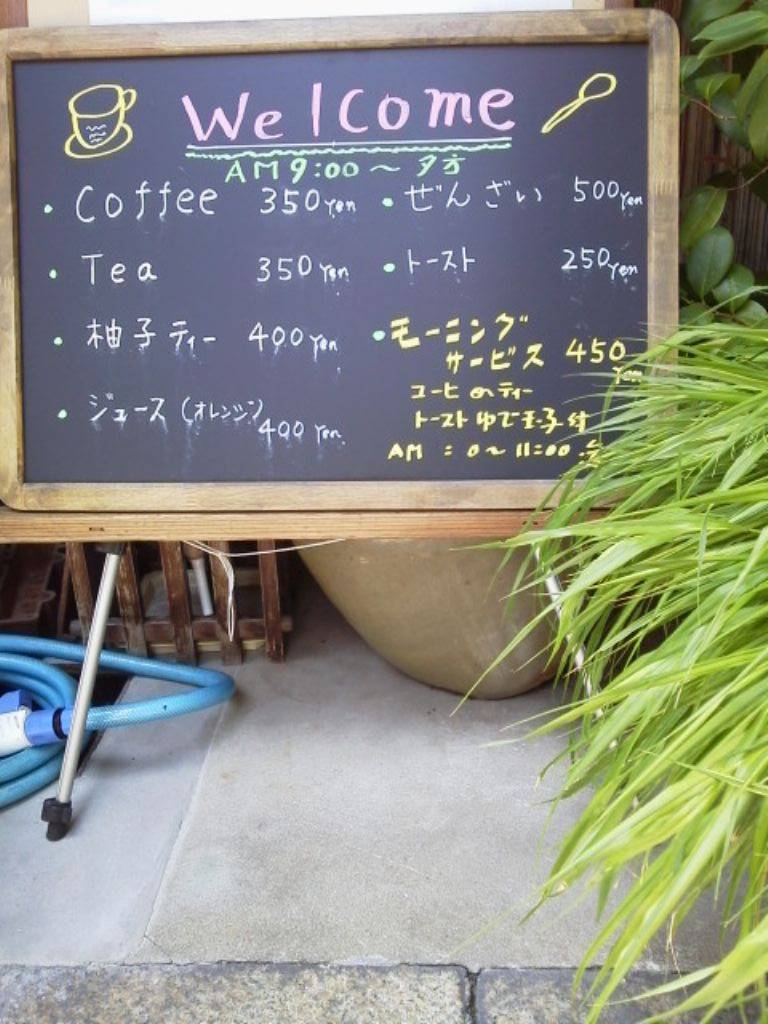 Welcome
AM9:00～夕方
・Coffee 350yen
・Tea 350yen
・柚子ティー 400yen
・ジュース(オレンジ) 400yen
・ぜんざい 500yen
・トースト 250yen
・モーニング
サービス 450
yen
コーヒ orティー
トースト ゆで玉子付
AM : 0～11:00